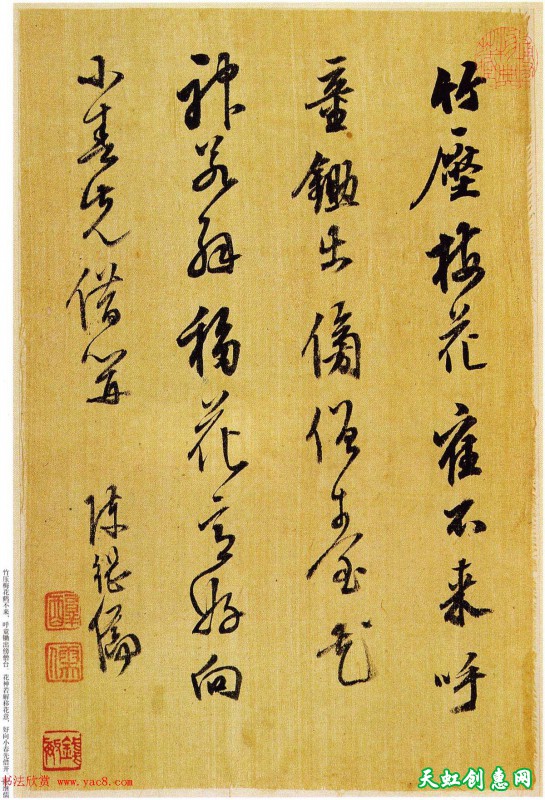 竹壓梅花寉不來呼
童鋤出傍僧臺花
神若解移花意好向
小春先借開
陳繼儒
竹压梅花鹤不来，呼童锄出傍僧台。花神若解移花意，好向小春先借开。
书法欣赏 www.yac8.com
天虹创意网